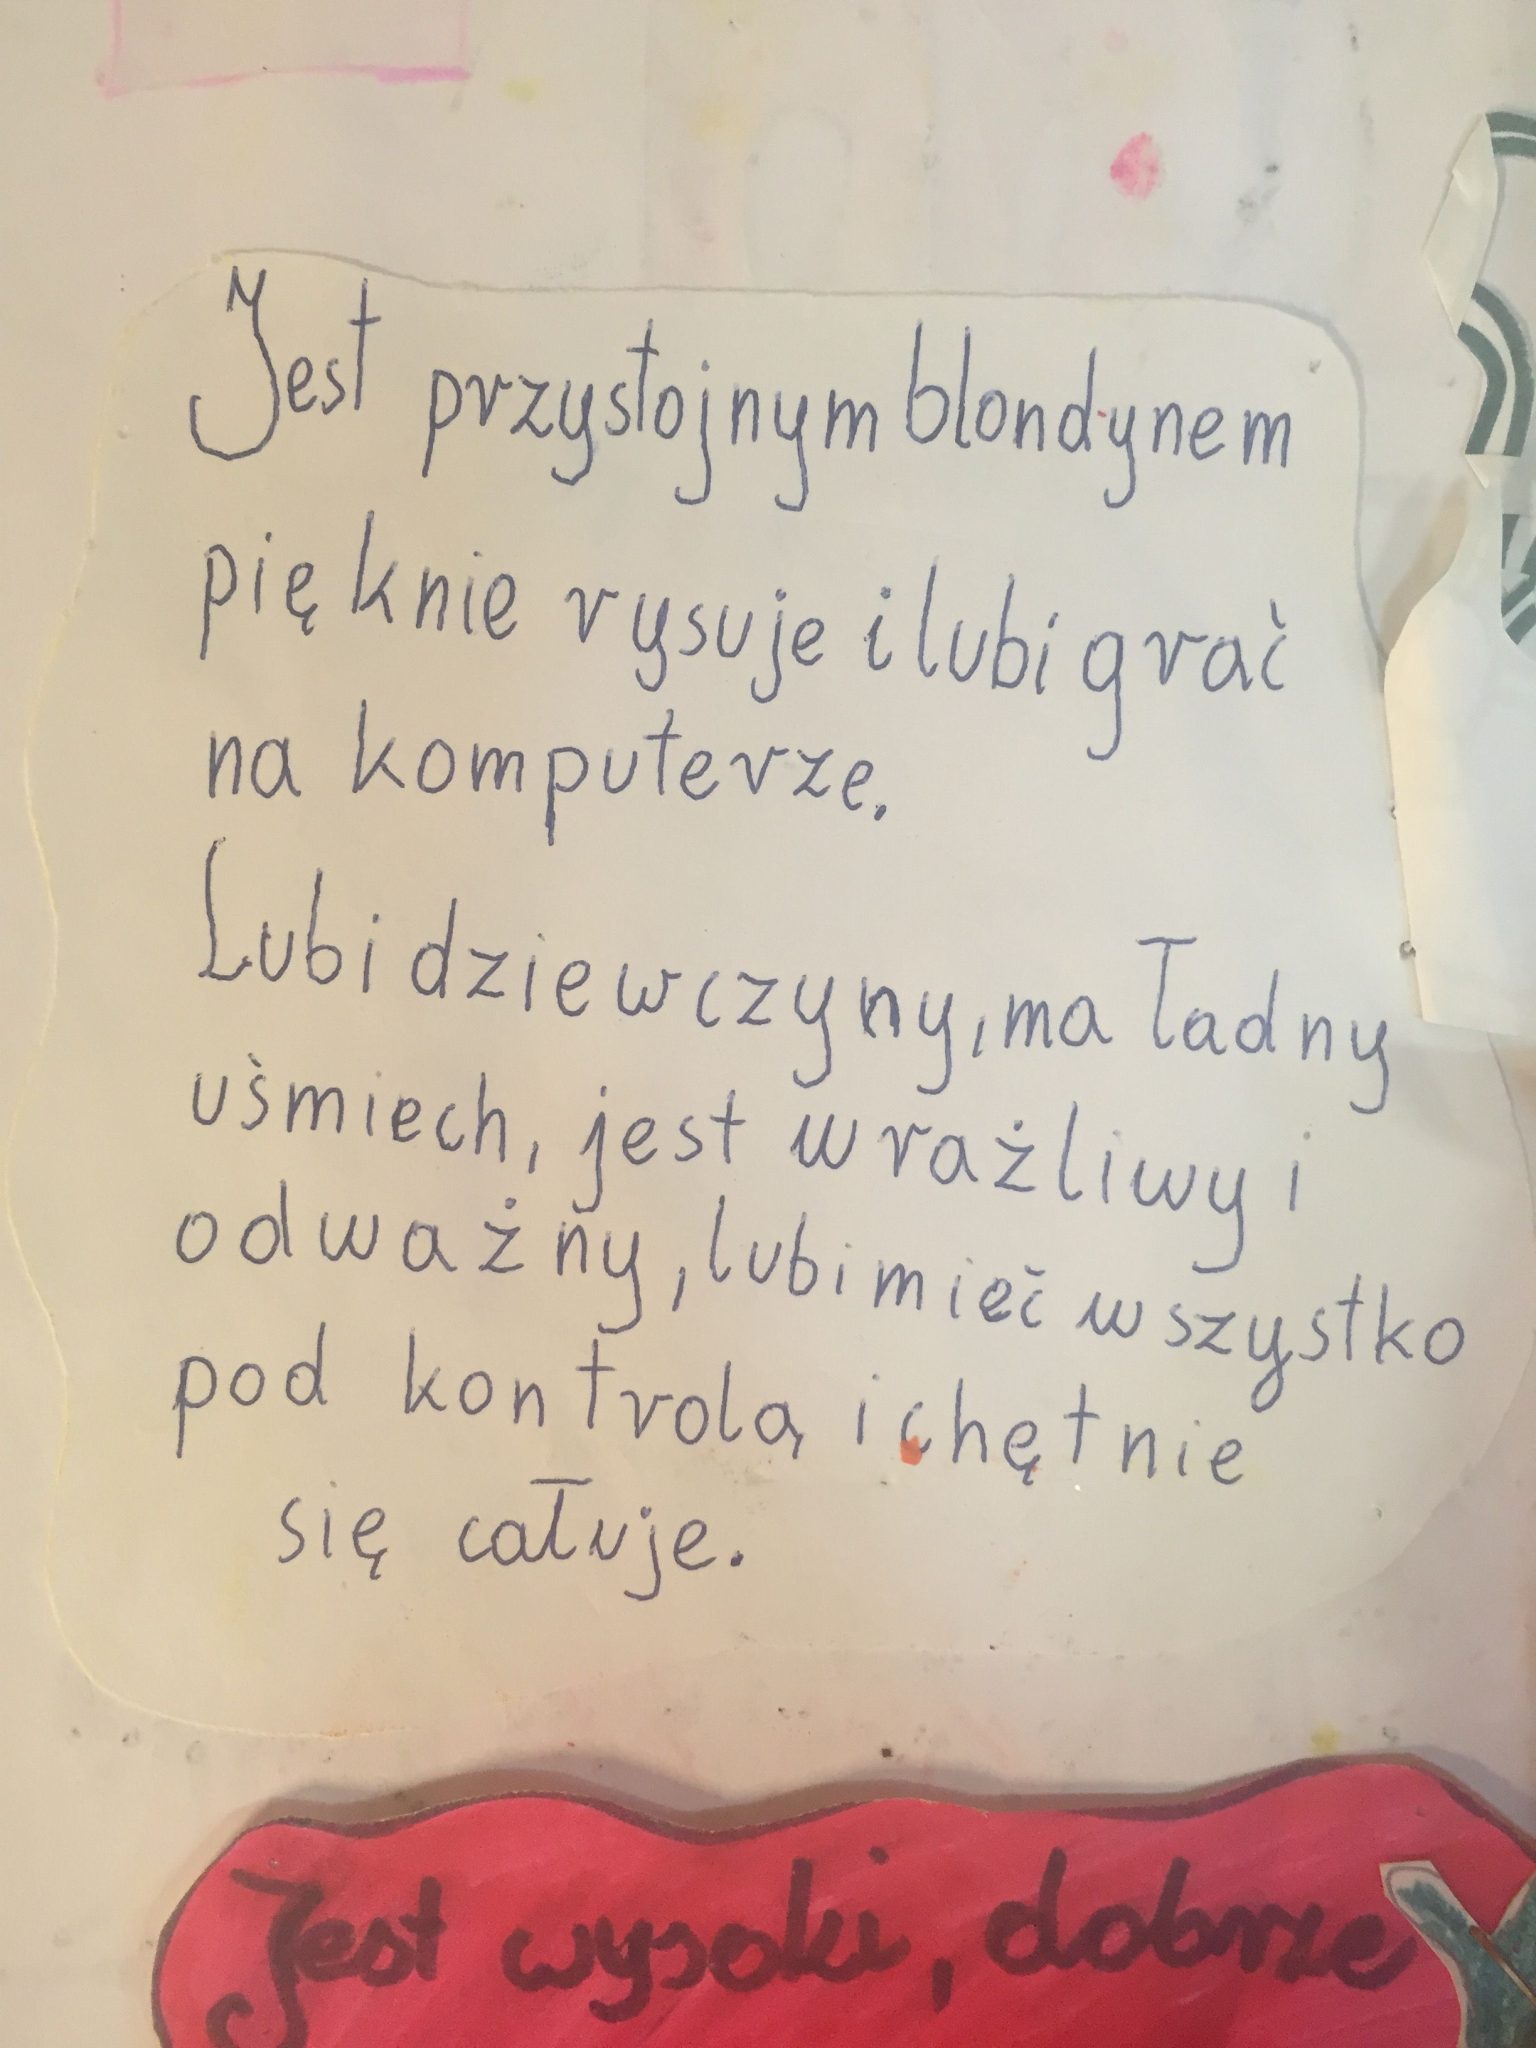 Jest przystojnym blondynem
pięknie rysuje i lubi grać
na komputerze.
Lubi dziewczyny, ma ładny
uśmiech, jest wrażliwy i
odważny, lubi mieć wszystko
pod kontrolą i chętnie
się całuje.
Jest wysoki, dobrze